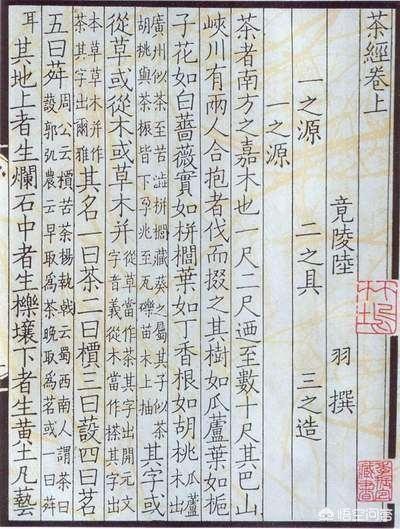 茶經卷上
竟陵陸 羽 撰
一之源 二之具 三之造
一之源
茶者南方之嘉木也一尺二尺迺至數十尺其巴山
峽川有兩人合抱者伐而掇之其樹如瓜蘆葉如梔
子花如白薔薇實如栟櫚葉如丁香根如胡桃 瓜蘆木出
廣州似茶至苦澁栟櫚葵之屬其子似茶
胡桃與茶根皆下孕兆至瓦礫苗木上抽 其字或
從草或從木或草木并 從草當作茶其字出開元文
字音義從木當作搽其字出
本草草木并作
茶其字出爾雅 其名一曰茶二曰檟三曰蔎四曰茗
五曰荈 周公云檟苦茶揚執戟云蜀西南人謂茶曰
蔎郭弘農云早取爲茶晚取爲茗或一曰荈
耳 其地上者生爛石中者生櫟壤下者生黃土凡藝
悟空问答